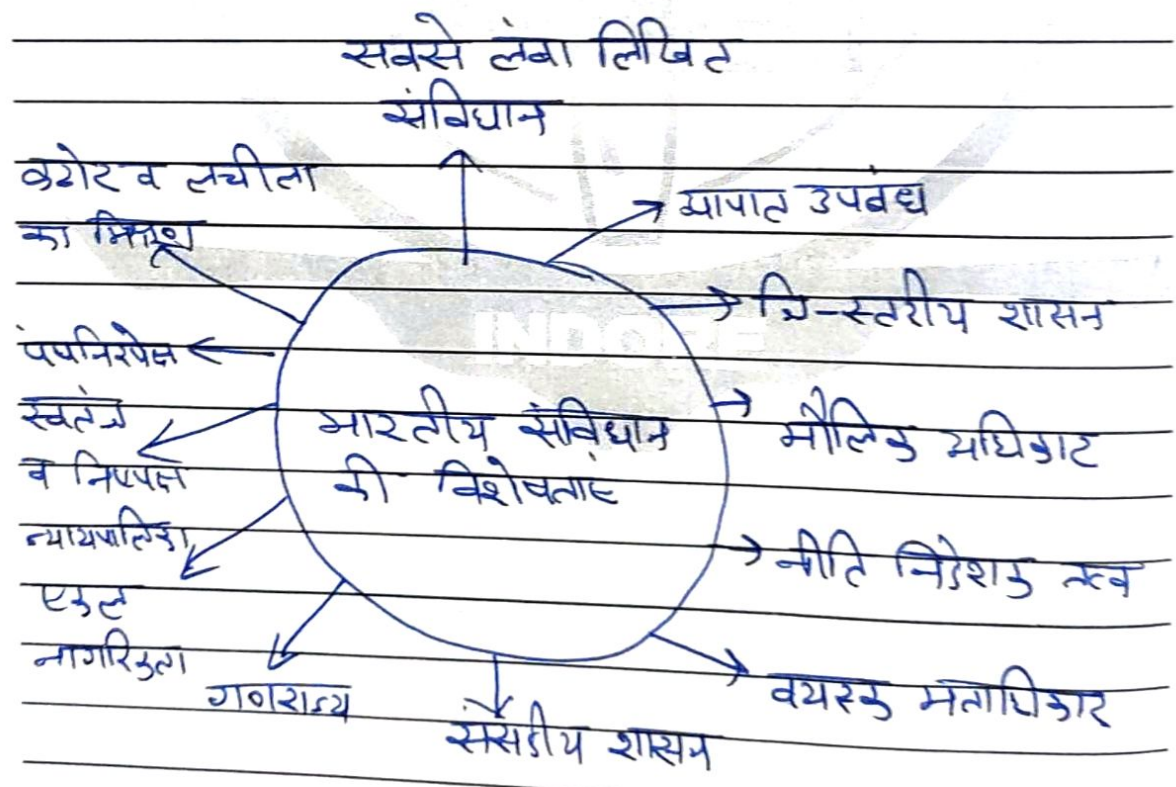 सबसे लंबा लिखित
संविधान
कठोर व लचीला
का मिश्रण
आपात उपबंध
त्रि-स्तरीय शासन
पंथनिरपेक्ष
स्वतंत्र
व निष्पक्ष
न्यायपालिका
भारतीय संविधान
की विशेषताएं
मौलिक अधिकार
नीति निदेशक तत्व
एकल
नागरिकता
गणराज्य
संसदीय शासन
वयस्क मताधिकार
INDORE